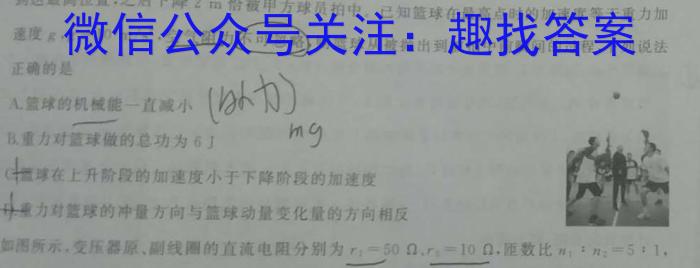 到达最高位置,之后下降2m恰被甲方球员拍中,已知篮球在最高点时的加速度等于重力加
速度g
微信公众号关注:趣找答案
正确的是
A.篮球的机械能一直减小 (以外力)
B.重力对篮球做的总功为6J mg
C.篮球在上升阶段的加速度小于下降阶段的加速度
D.重力对篮球的冲量方向与篮球动量变化量的方向相反
如图所示,变压器原、副线圈的直流电阻分别为r₁=50Ω、r₂=10Ω,匝数比n₁:n₂=5:1,